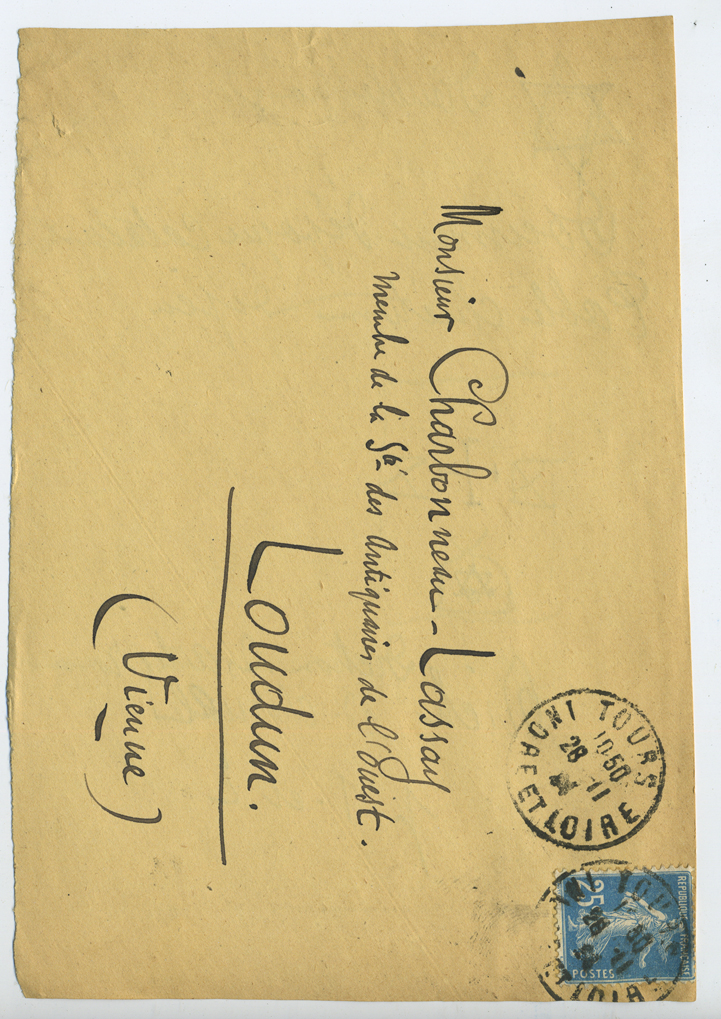 Monsieur Charbonneau-Lassay
membre de la Sté des Antiquaires de l'Ouest.
Loudun.
(Vienne)
TOURS
10·50
28 11
ET LOIRE
REPUBLIQUE FRANÇAISE
25
POSTES